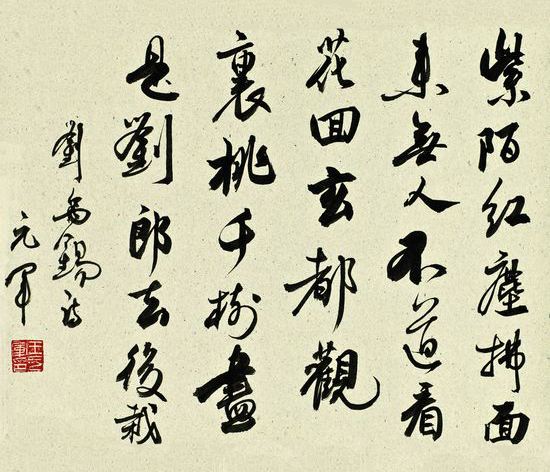 紫陌紅塵拂面
來無人不道看
花回玄都觀
裏桃千樹盡
是劉郎去後栽
劉禹錫詩
元軍